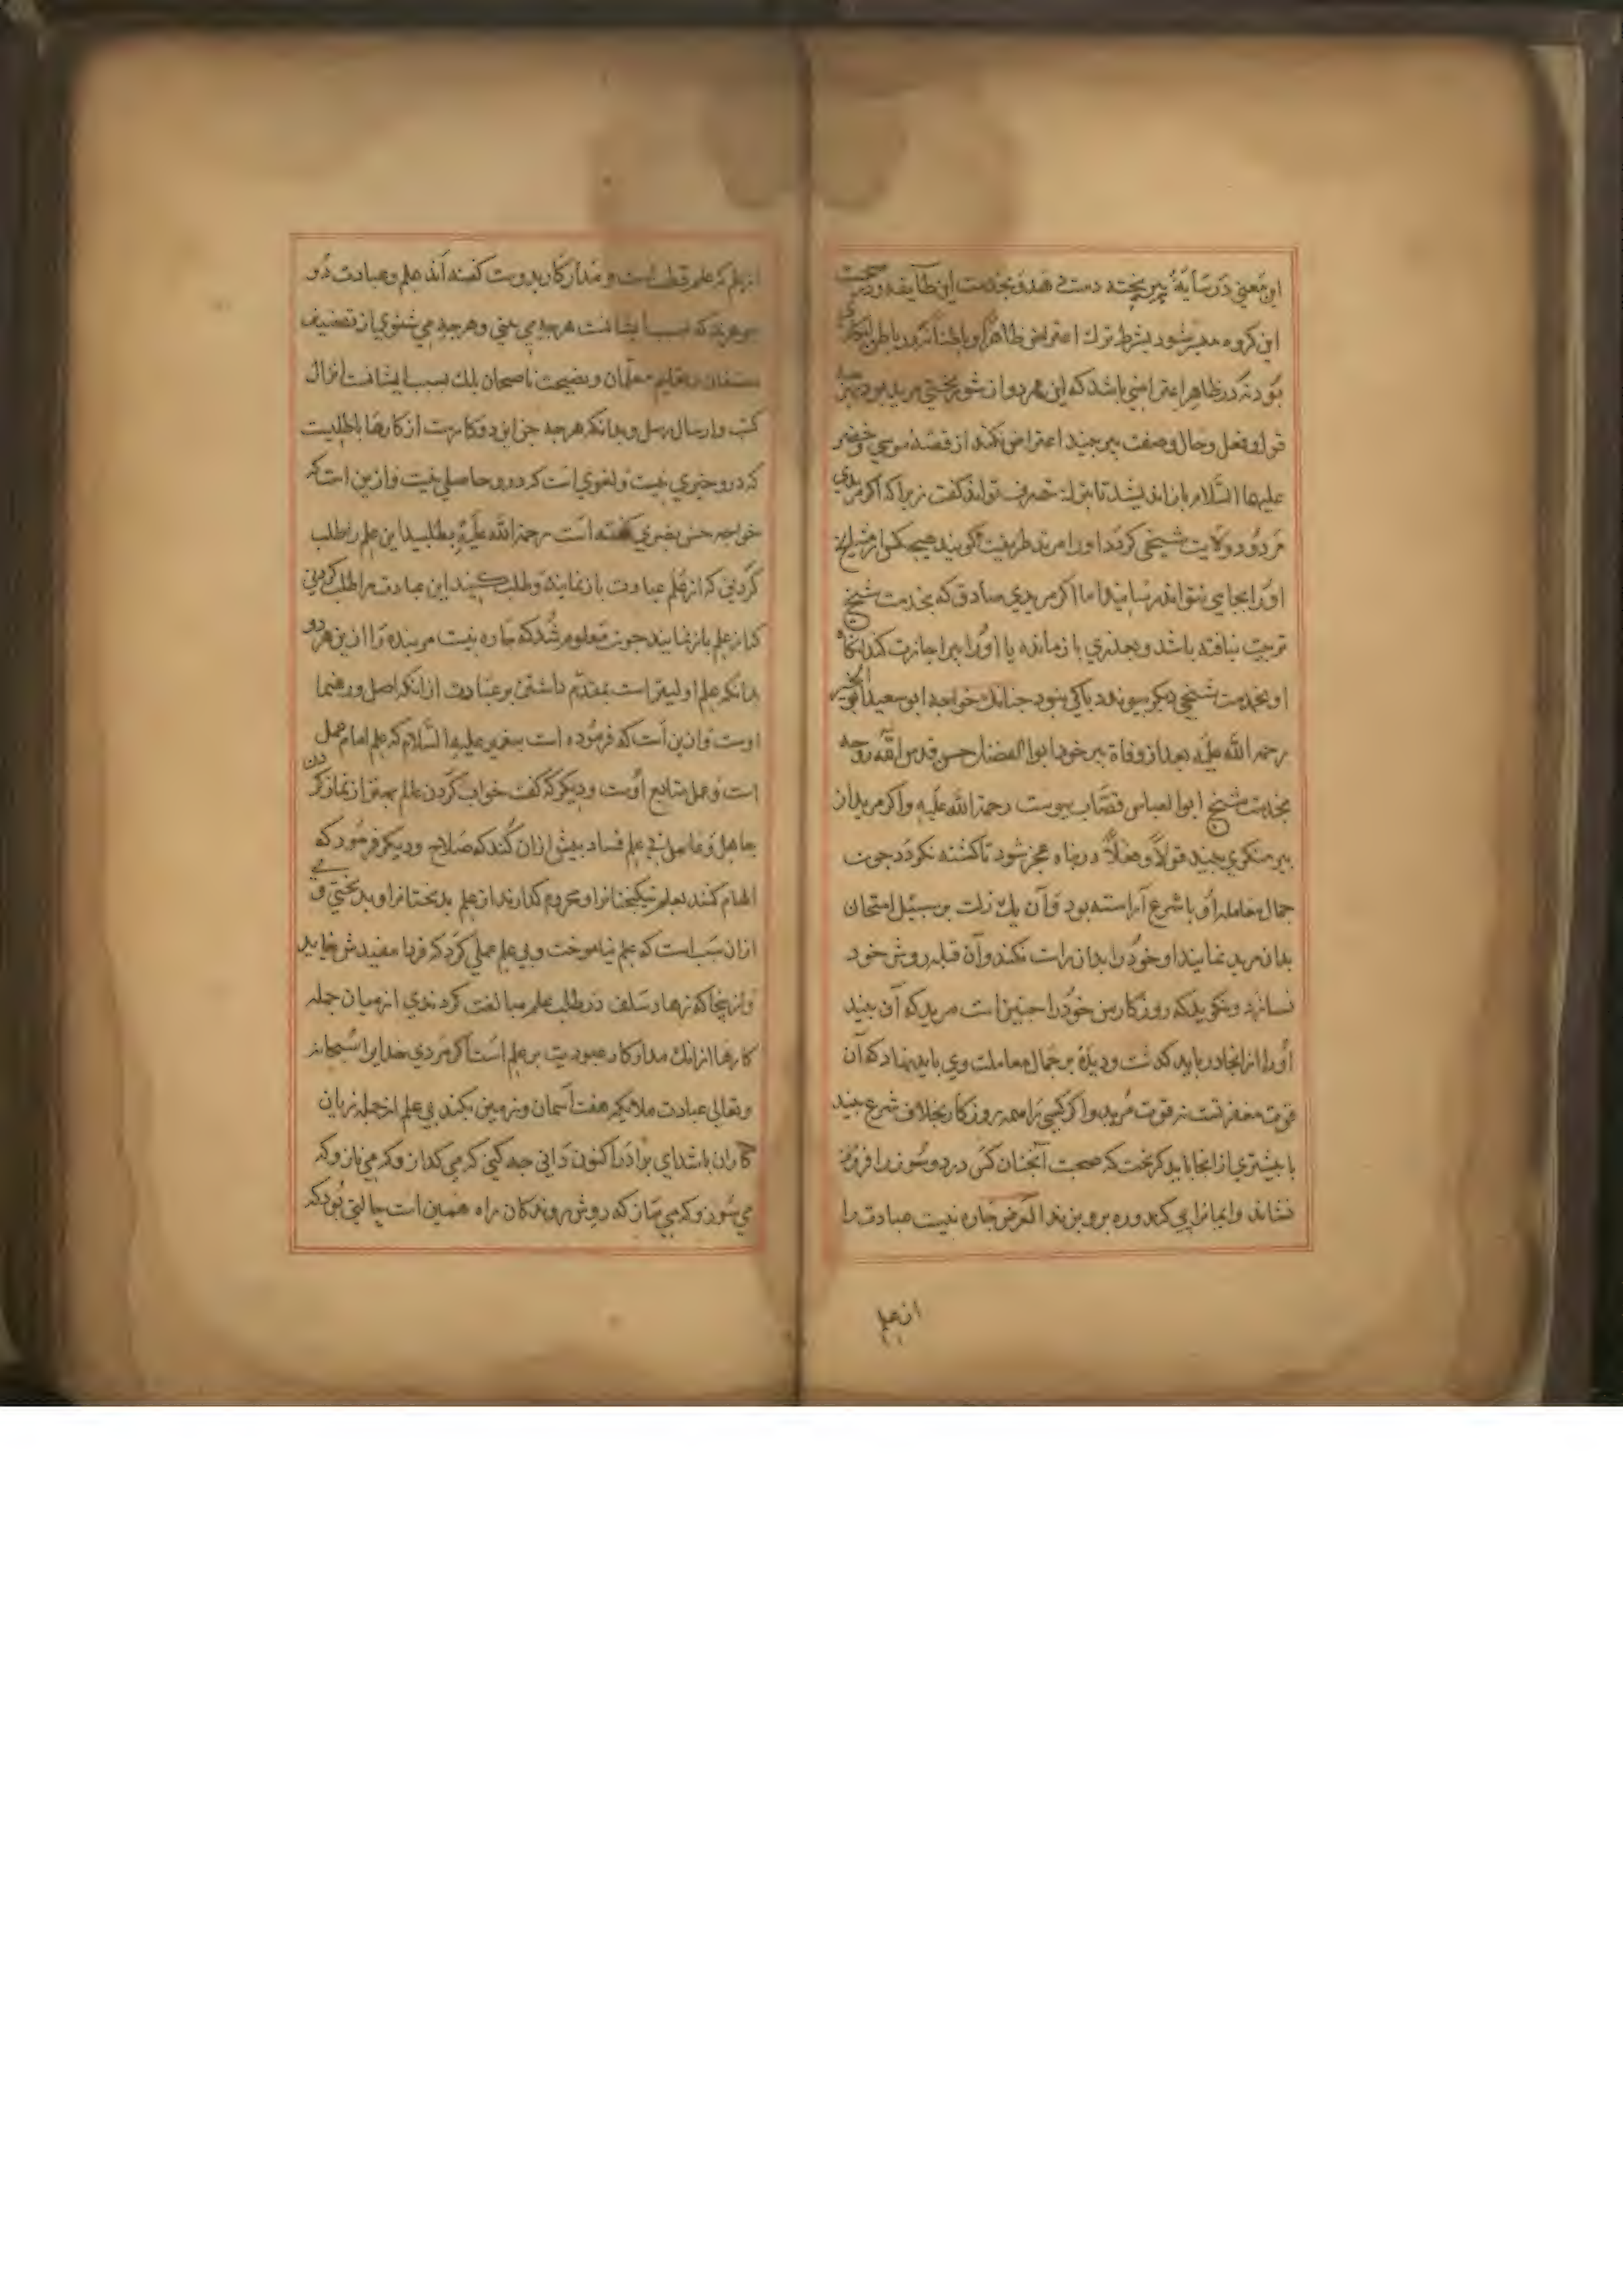 این معنی در سایهٔ پیر پخته دست دهد و بخدمت این طایفه و در صحبت
این کروه میسر شود بشرط ترك اعتراض ظاهرًا و باطنًا نه در باطن انکاری
بود نه در ظاهر اعتراضی باشد که این هر دو از شور بختی مرید بود
قول و فعل و حال و صفت پیر بیند اعتراض نکند از قصهٔ موسی و خضر
علیهما السّلام باز اندیشد تا بترك تصرف تواند کفت زیرا که اکر مریدی
مردود ولایت شیخی کردد او را مرتد طریقت کویند هیچکس از مشایخ
او را بجایی نتواند رسانید و اما اکر مریدی صادق که بخدمت شیخ
تربیت نیافته باشد و بعذری باز مانده یا او را پیر اجازت کند آنکاه
او بخدمت شیخی دیکر پیوندد باکی نبود جنانك خواجه ابو سعید ابو الخیر
رحمة الله علیه بعد از وفاة پیر خود ابوا لفضل حسن قدس الله روحه
بخدمت شیخ ابوا لعباس قصّاب پیوست رحمة الله علیه و اکر مرید از
پیر منکری بیند قولًا و فعلًا در پناه عجز شود تا کشته نکردد جون
جمال معامله او با شرع آراسته بود و آن یك زلت بر سبیل امتحان
بدان مرید نمایند او خود را بدان راست نکند و آن قبله روش خود
نسازد و نکوید که روزکار من خود را جنین است مرید که آن بیند
او را از انجا در باید کذشت و دیدهٔ بر جمال معاملت وی باید نهاد که آن
قوت معفرتست نه قوت مرید و اکر کسی را همه روزکار بخلاف شرع بیند
یا بیشتری از انجا باید کریخت که صحبت آنجنان کس درد و سوز را فرو
نشاند و ایمانرا پی کند و ره برو بزند الغرض جاره نیست عبادت را
از علم
از علم که علم قطب است و مدار کار بدوست کفته اند علم و عبادت دو
جوهرند که بسبب ایشانست هرجه می بینی و هرجه می شنوی از تصنیف
مصنفان و تعلیم معلّمان و نصیحت ناصحان بلك بسبب ایشانست انزال
کتب و ارسال رسل و بدانکه هرجه جز این دو کارست از کارها باطلیست
که درو خیری نیست و لغوی است که درو حاصلی نیست و از ین است که
خواجه حسن بصری کفته است رحمة الله علیه بطلبید این علم را طلب
کردنی که از علم عبادت باز نمایند و طلب کنید این عبادت را طلب کردنی
کز علم باز نمایند جون معلوم شد که جاره نیست مر بنده را از ین هر دو
بدانکه علم اولیتر است بمقدّم داشتن بر عبادت از انکه اصل و رهنما
اوست و از ین است که فرموده است پیغمبر علیه السّلام که علم امام عمل
است و عمل متابع اوست و دیکر که کفت خواب کردن عالم بهتر از نماز کردن
جاهل و عامل بی علم فساد بیش از ان کند که صلاح و دیکر فرمود که
الهام کنند بعلم نیکبختانرا و محروم کذارند از علم بدبختانرا و بدبختی وی
از ان سبب است که علم نیاموخت و بی علم عملی کرد که فردا مفیدش نیاید
و از ینجا که زهاد سلف در طلب علم مبالغت کردندی از میان جمله
کارها از انك مدار کار عبودیت بر علم است اکر مردی خدایرا سبحانه
و تعالی عبادت ملایکه هفت آسمان و زمین بکند بی علم از جمله زیان
کاران باشد ای برادر اکنون دانی جه کنی که می کداز و که می ناز و که
می سوز و که می ساز که روش روندکان راه همین است جالتی بود که